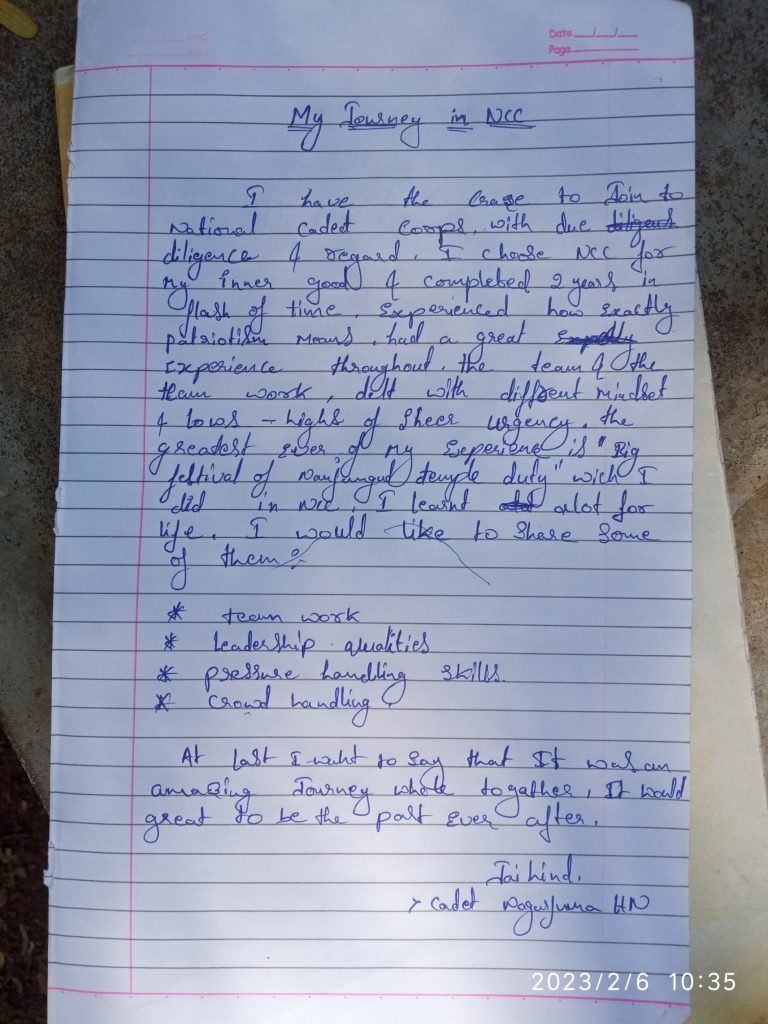 Date __/__/__
Page ______
My Journey in NCC
I have the craze to Join to
National Cadet Corps, with due diligens
diligence & regard. I choose NCC for
my inner good & completed 2 years in
flash of time. Experienced how Exactly
patriotism means, had a great
Experience throughout. the team & the
team work, delt with different mindset
& lows - highs of sheer urgency. the
greatest ever of my Experiene is "Big
festival of Nanjangud temple duty" wich I
did in NCC. I learnt alot for
life. I would like to share some
of them :-
* team work
* leadership qualities
* pressure handling skills.
* crowd handling
At last I want to say that It was an
amazing Journey whole togather, It would
great to be the part ever after.
Jai hind.
> Cadet Nagarjuna HN
2023/2/6 10:35